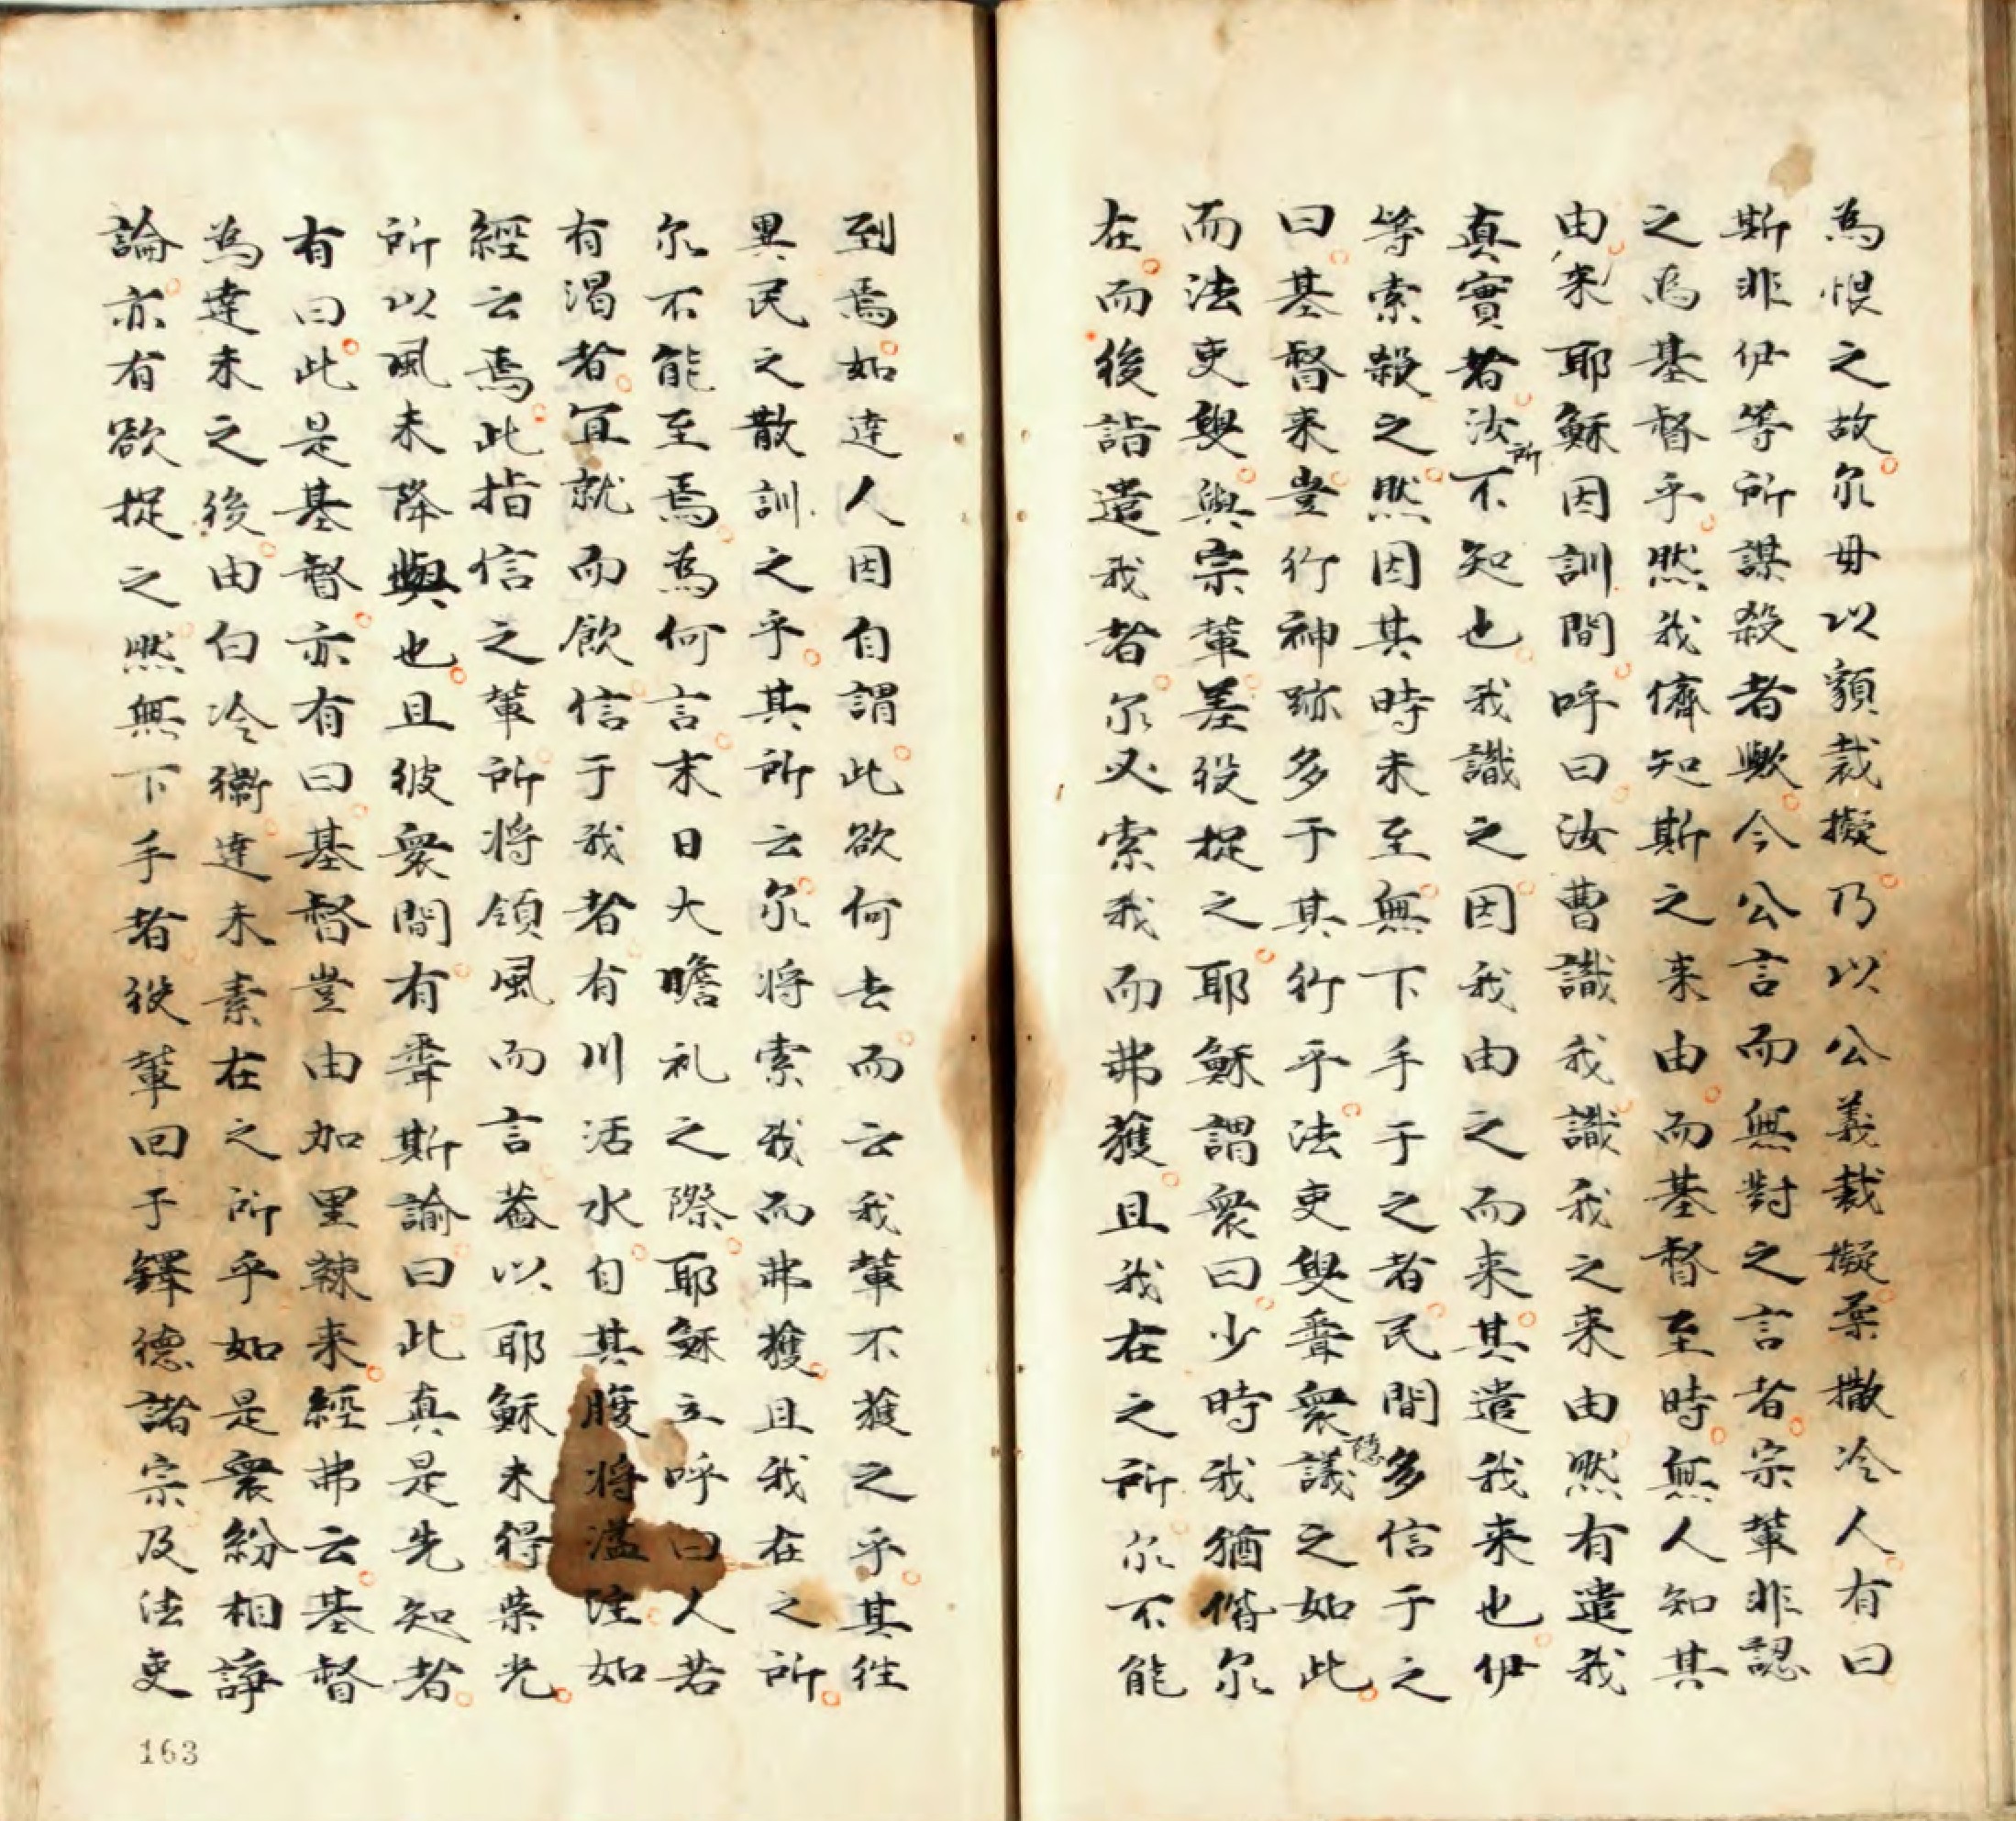 為恨之故尔毋以額裁擬乃以公義裁擬柔撒冷人有曰
斯非伊等所謀殺者歟今公言而無對之言者宗輩非認
之為基督乎然我儕知斯之来由而基督至時無人知其
由来耶穌因訓間呼曰汝曹識我識我之来由然有遣我
真實者汝所不知也我識之因我由之而来其遣我来也伊
等索殺之然因其時未至無下手于之者民間多信于之
曰基督来豈行神跡多于其行乎法吏㒷聋衆隱議之如此
而法吏㒷與宗輩差役捉之耶穌謂衆曰少時我猶偕尔
在而後詣遣我者尔又索我而弗獲且我在之所尔不能
到焉如達人因自謂此欲何去而云我輩不獲之乎其徃
異民之散訓之乎其所云尔将索我而弗獲且我在之所
尔不能至焉為何言末日大瞻礼之際耶穌立呼曰人若
有渴者宜就而飲信于我者有川活水自其腹将溢注如
經云焉此指信之輩所将領風而言蓋以耶穌未得榮光
所以風未降與也且彼衆間有聋斯諭曰此真是先知者
有曰此是基督亦有曰基督豈由加里辣来經弗云基督
為達未之後由白冷衢達未素在之所乎如是衆紛相諍
論亦有欲捉之然無下手者役輩回于鐸德諸宗及法吏
163